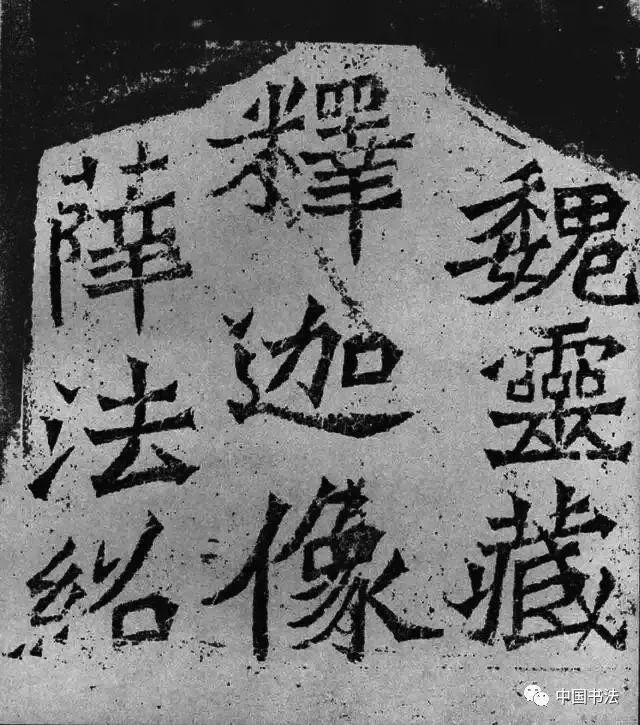 魏靈藏
釋迦像
薛法紹
中国书法